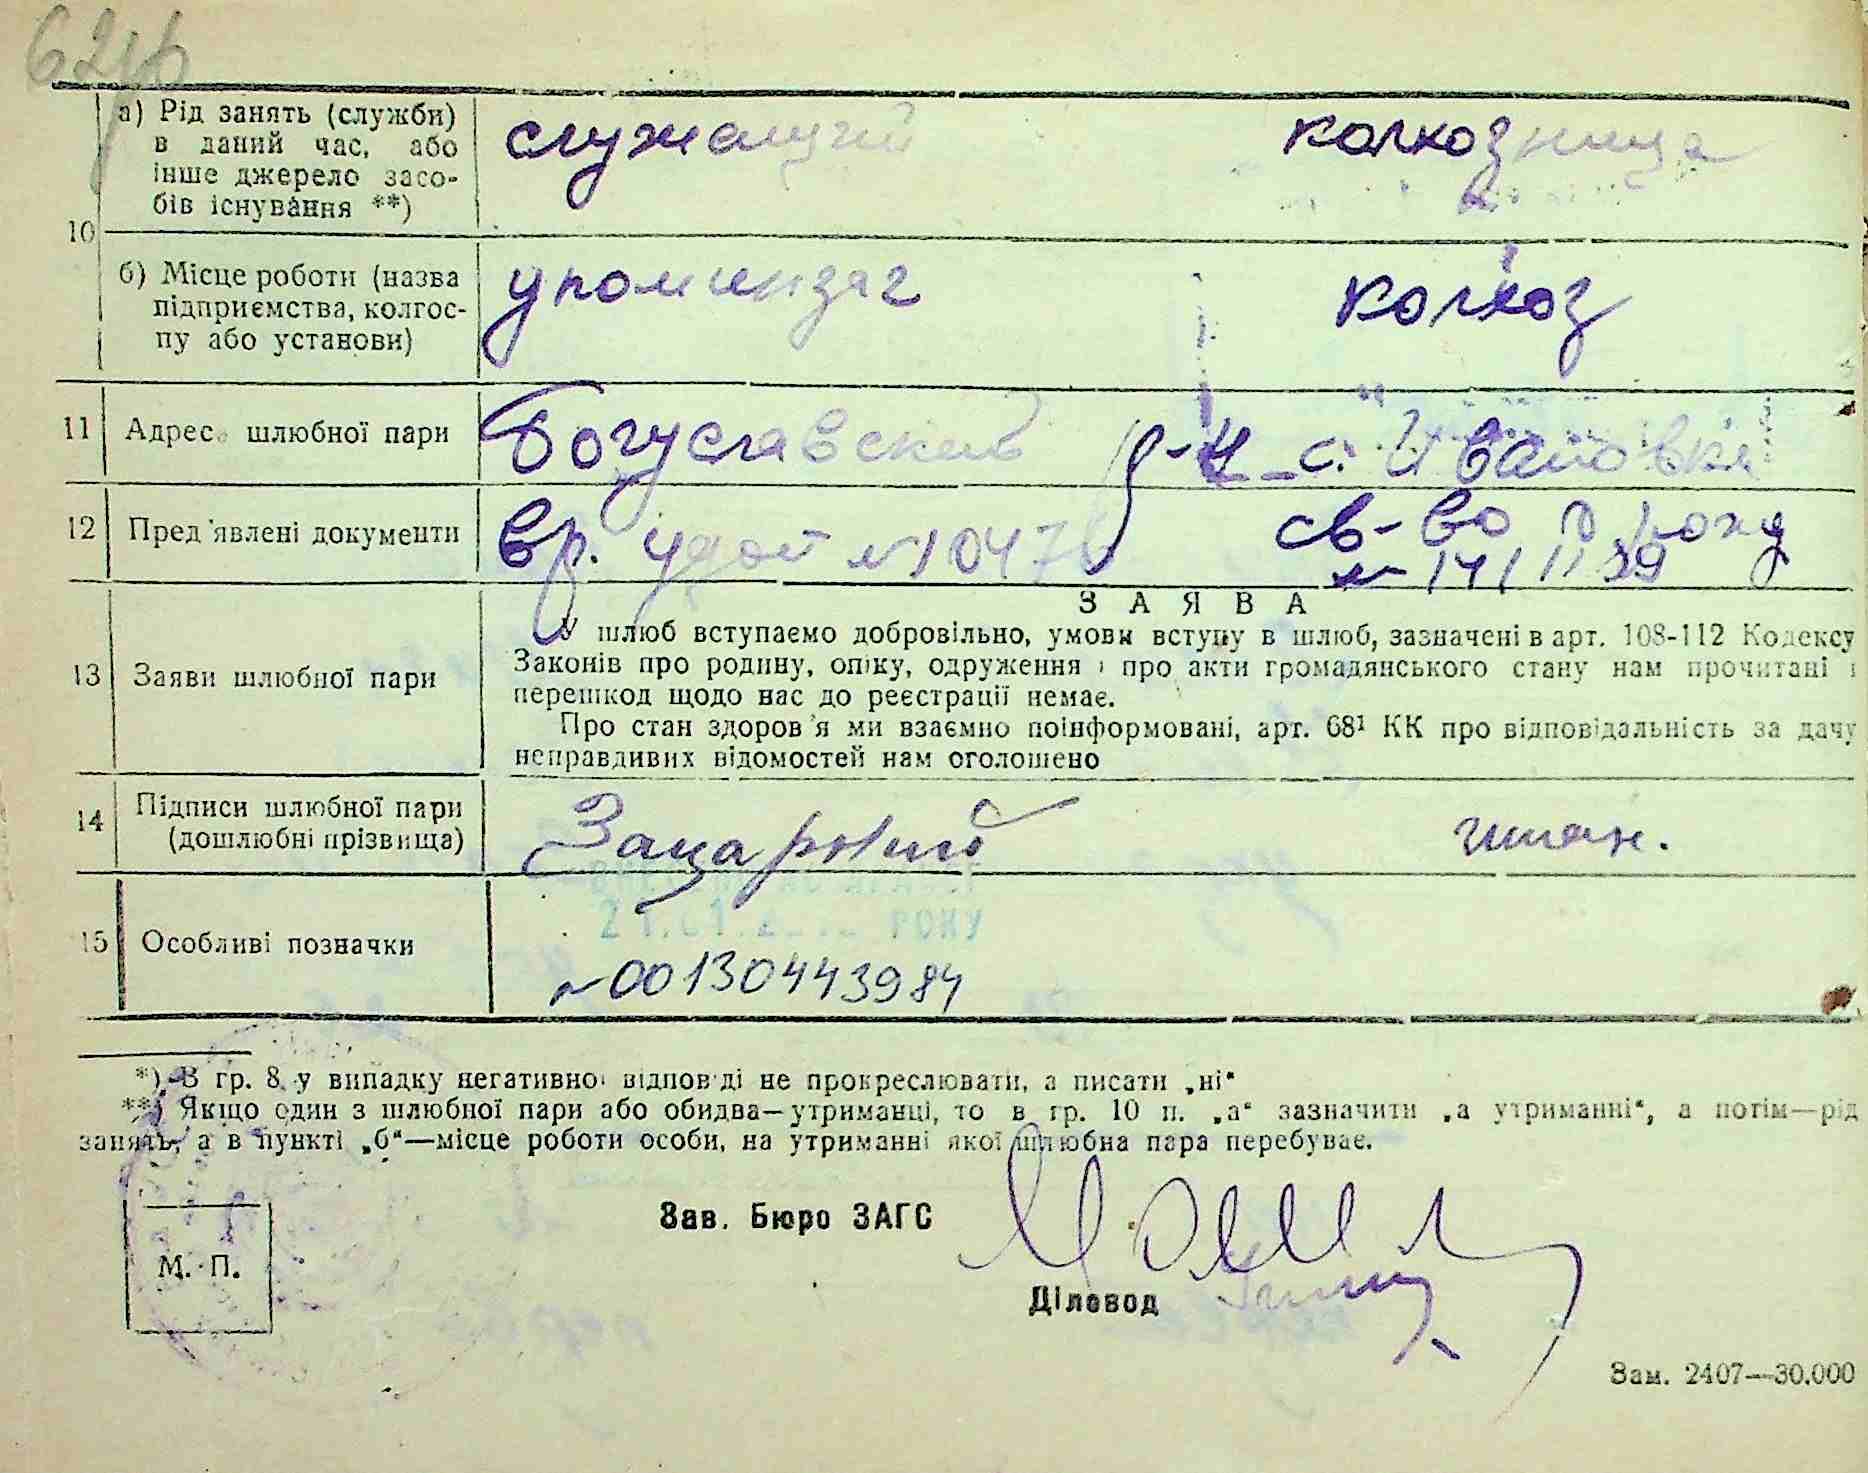 а) Рід занять (служби) в даний час, або інше джерело засобів існування **)
служащий колхозница
10
б) Місце роботи (назва підприємства, колгоспу або установи)
упоминзаг колхоз
11 Адреса шлюбної пари Богуславский р-н с. Ивановка
12 Пред'явлені документи вр. удост №10476 св-во о рожд
№ 141 11 39
З А Я В А
13 Заяви шлюбної пари
У шлюб вступаємо добровільно, умови вступу в шлюб, зазначені в арт. 108-112 Кодексу
Законів про родину, опіку, одруження і про акти громадянського стану нам прочитані і
перешкод щодо нас до реєстрації немає.
Про стан здоров'я ми взаємно поінформовані, арт. 68¹ КК про відповідальність за дачу
неправдивих відомостей нам оголошено
14 Підписи шлюбної пари (дошлюбні прізвища)
15 Особливі позначки
РОКУ
№00130443984
*) В гр. 8 у випадку негативної відповіді не прокреслювати, а писати „ні“
**) Якщо один з шлюбної пари або обидва—утриманці, то в гр. 10 п. „а“ зазначити „а утриманні“, а потім—рід
занять, а в пункті „б“—місце роботи особи, на утриманні якої шлюбна пара перебуває.
Зав. Бюро ЗАГС
М. П.
Діловод
Зам. 2407—30.000